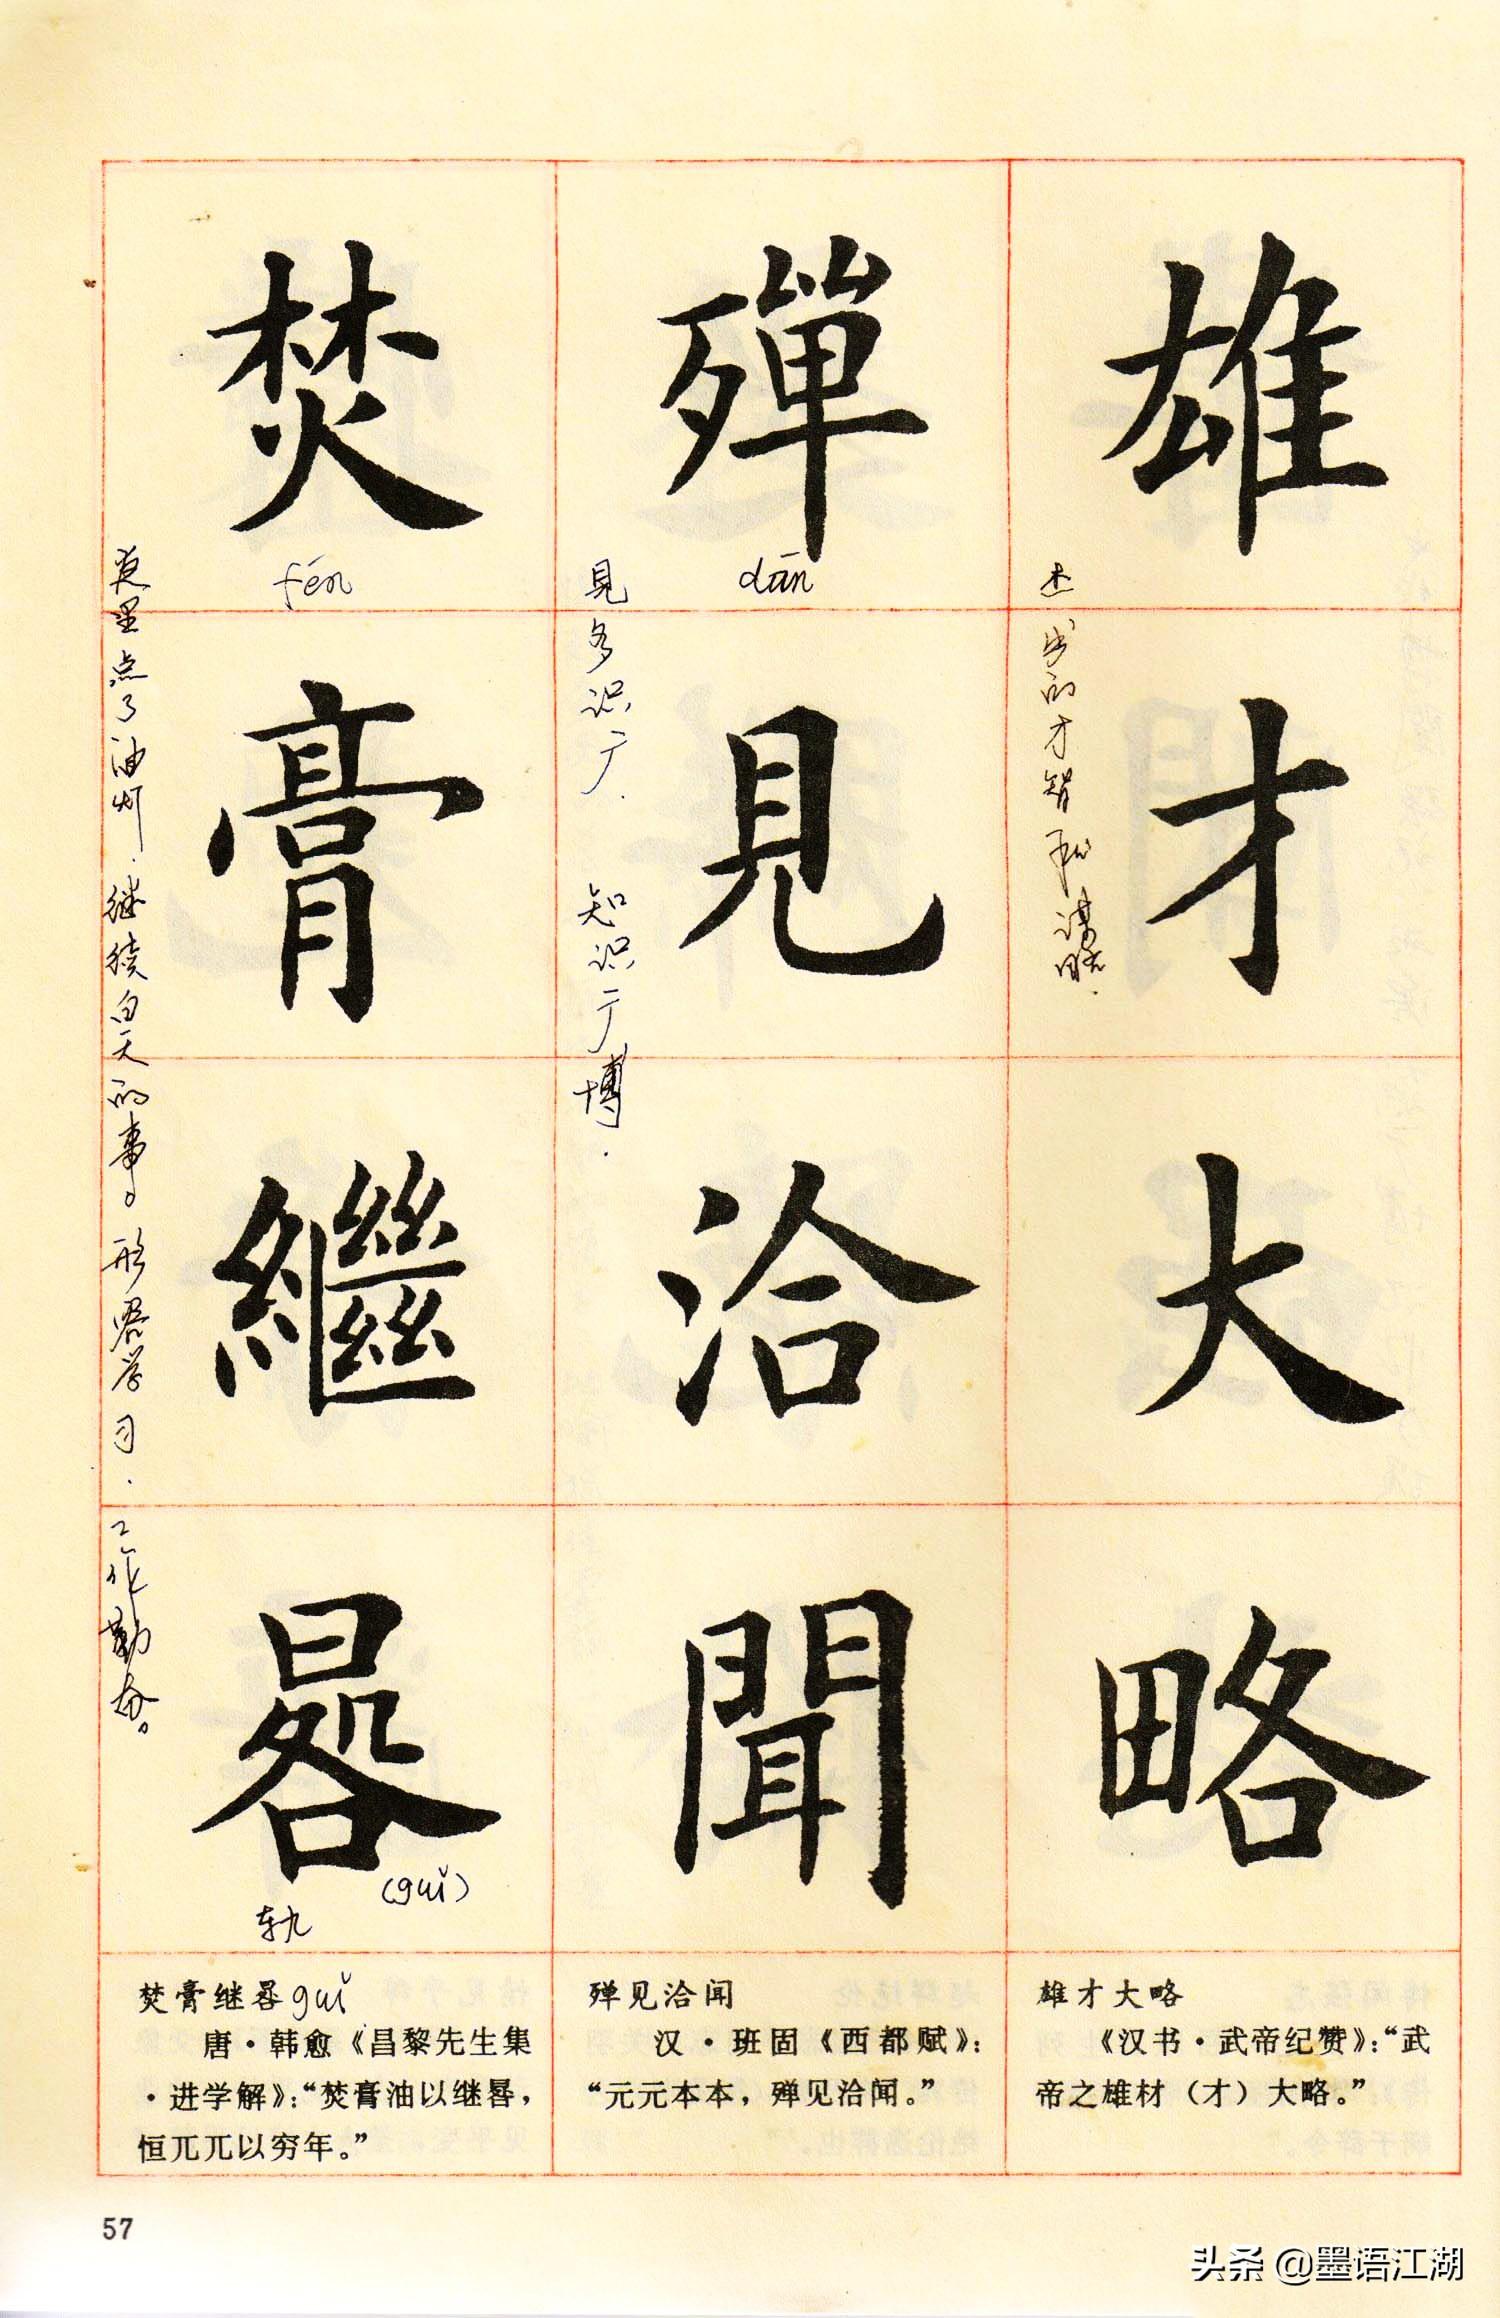 雄才大略
杰出的才智和谋略.
殫見洽聞
dān
見多识广.
知识广博.
焚膏繼晷
fén
(guǐ)
轨
夜里点了油灯.继续白天的事。形容学习.
工作勤奋。
雄才大略
《汉书·武帝纪赞》：“武
帝之雄材（才）大略。”
殚见洽闻
汉·班固《西都赋》：
“元元本本，殚见洽闻。”
焚膏继晷guǐ
唐·韩愈《昌黎先生集
·进学解》：“焚膏油以继晷，
恒兀兀以穷年。”
57
头条 @墨语江湖